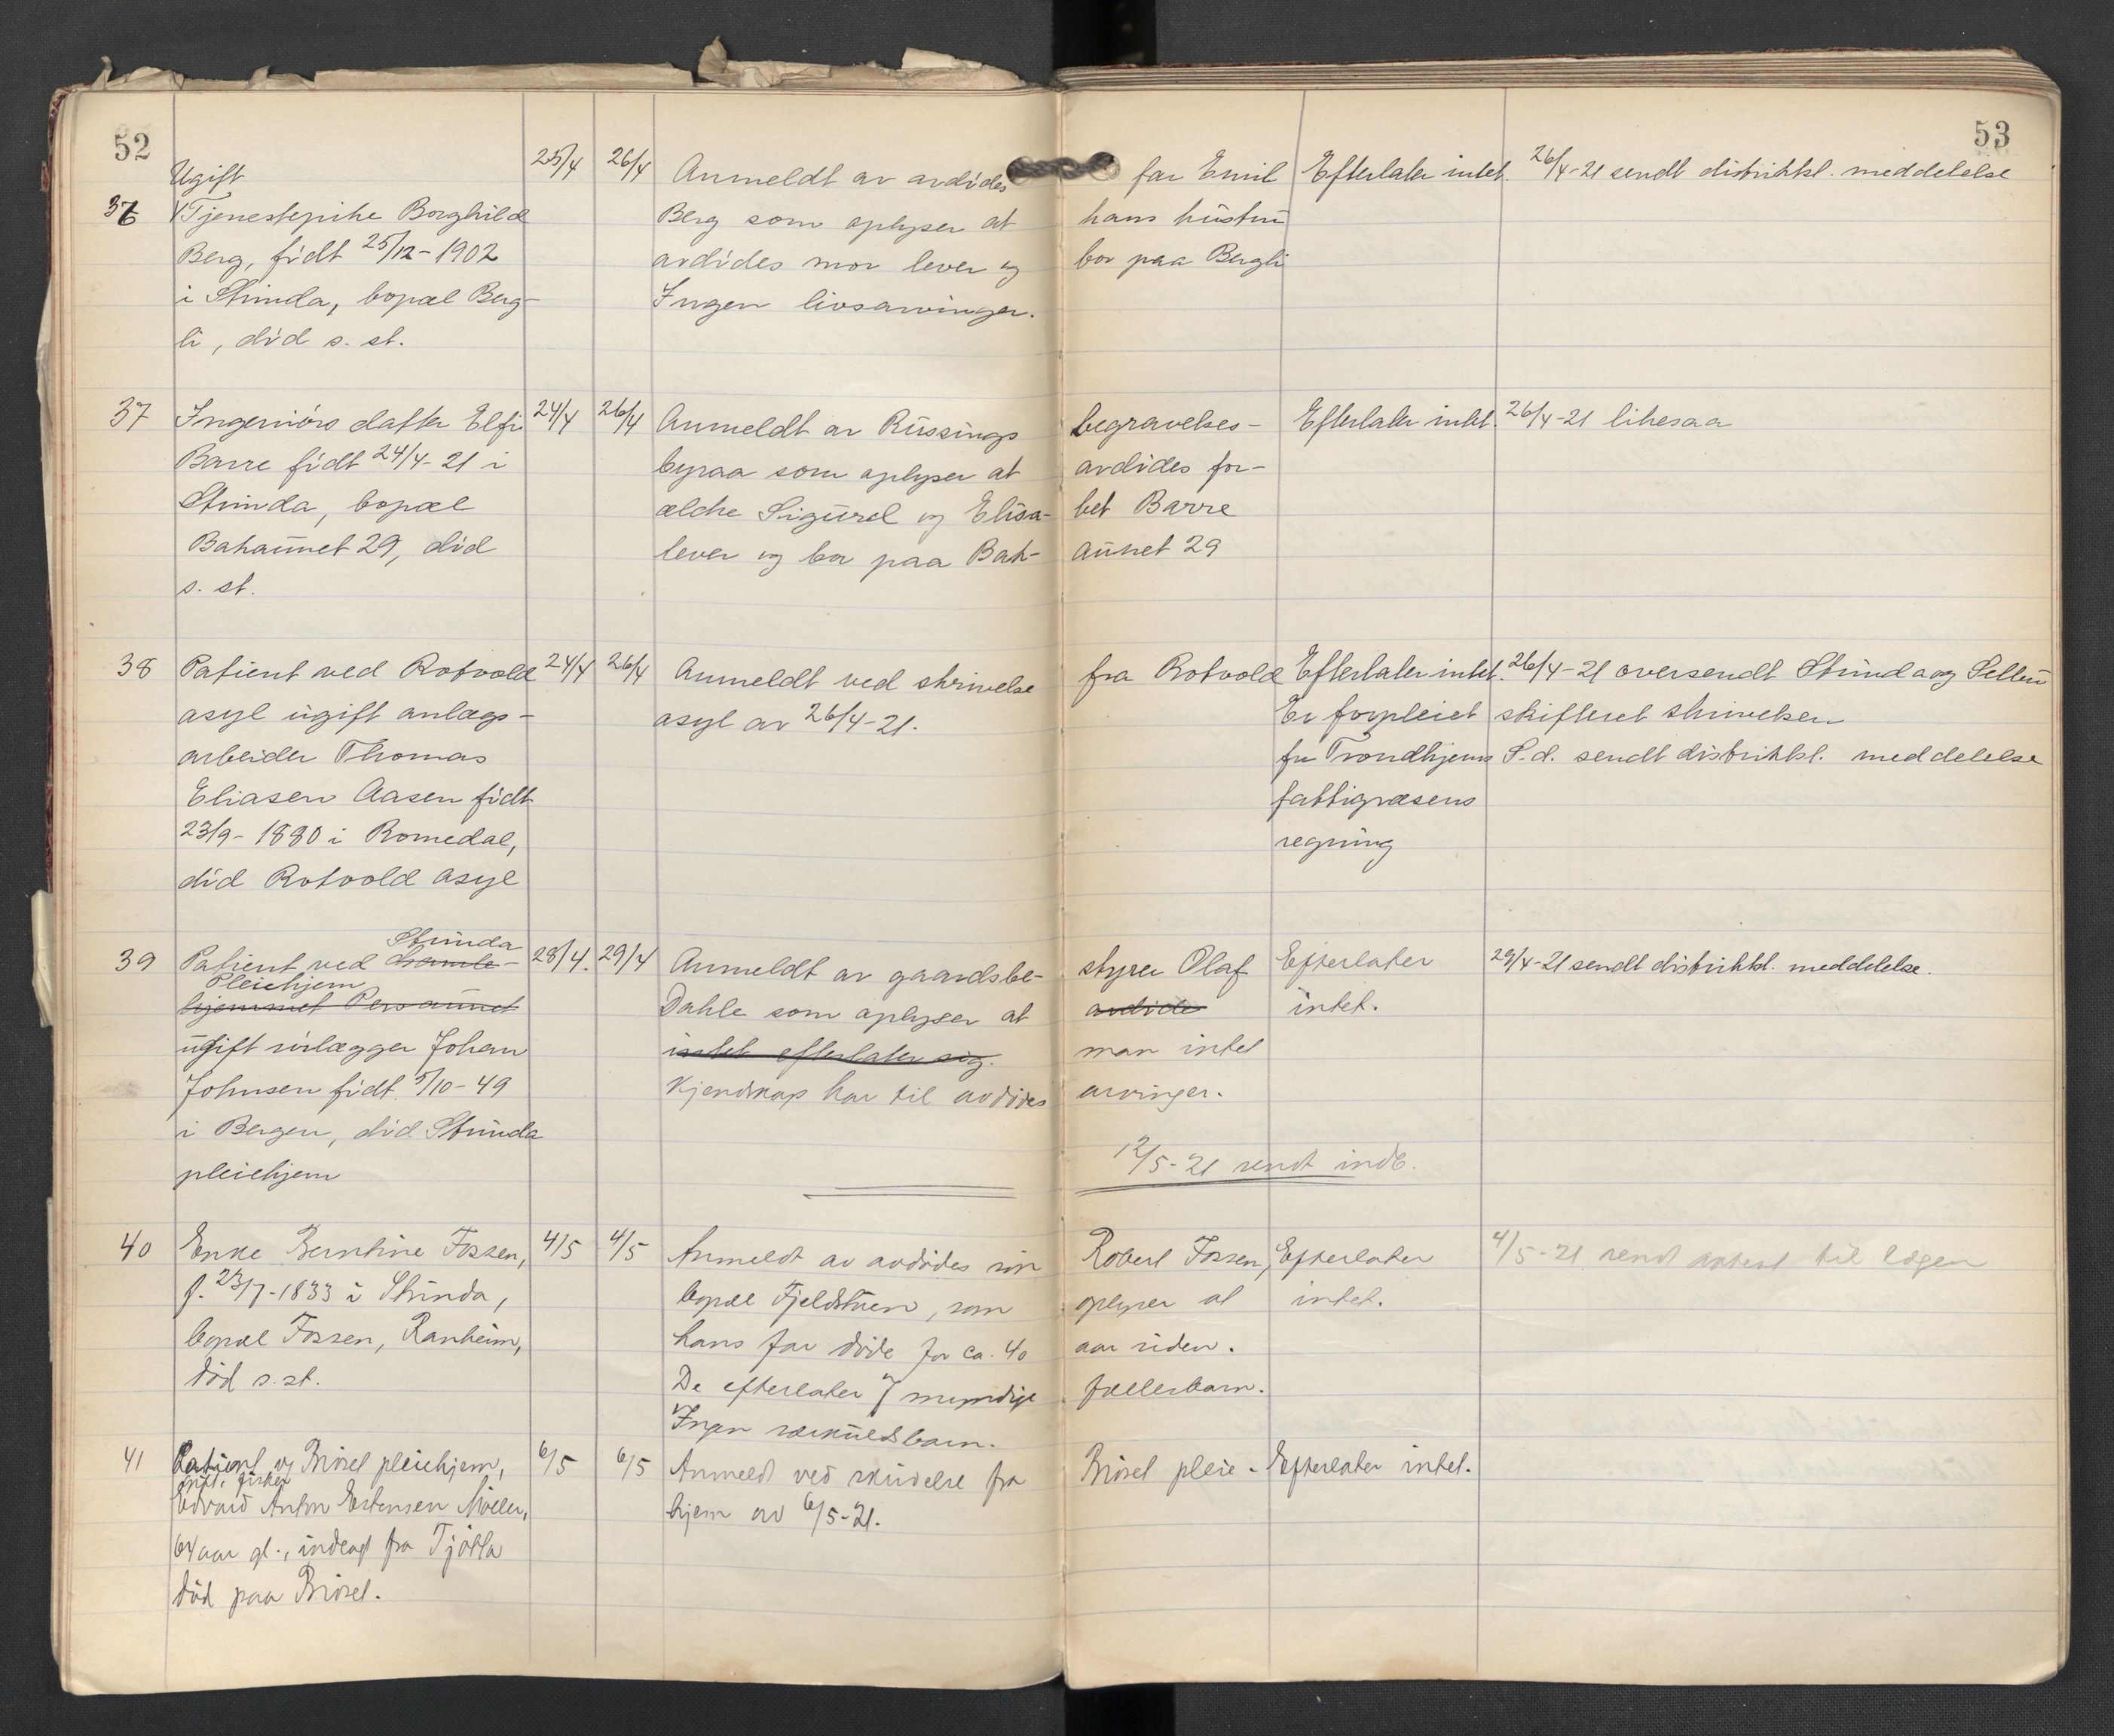 52
53
Ugift 25/4 26/4 Anmeldt av avdødes far Emil Efterlater intet. 26/4-21 sendt distriktsl. meddelelse
36 Tjenestepike Borghild Berg som oplyser at hans hustru
Berg, født 25/12-1902 avdødes mor lever og bor paa Bergli
i Strinda, bopæl Berg- Ingen livsarvinger.
li, død s. st.
37 Ingeniørs datter Elfi 24/4 26/4 Anmeldt av Rüssings begravelses- Efterlater intet. 26/4-21 likesaa
Barre født 24/4-21 i byraa som oplyser at avdødes for-
Strinda, bopæl ældre Sigurd og Elisa- bet Barre
Bakaunet 29, død lever og bor paa Bak- aunet 29
s. st.
38 Patient ved Rotvold 24/4 26/4 Anmeldt ved skrivelse fra Rotvold Efterlater intet. 26/4-21 oversendt Strinda og Selbu
asyl ugift anlægs- asyl av 26/4-21. Er forpleiet skifteret skrivelsen
arbeider Thomas for Trondhjems S.d. sendt distriktsl. meddelelse
Eliasen Aasen født fattigvæsens
23/9-1880 i Romedal, regning
død Rotvold asyl
Strinda
39 Patient ved Gamle- 28/4. 29/4 Anmeldt av gaardsbe- styrer Olaf Efterlater 29/4-21 sendt distriktsl. meddelelse.
Pleiehjem
hjemmet Persaunet Dahle som oplyser at avdøde intet.
ugift inlægger Johan intet efterlater sig. man intet
Johnsen født 5/10-49 Kjendskap har til avdødes arvinger.
i Bergen, død Strinda
pleiehjem 12/5-21 sendt indb.
40 Enke Berntine Fossen, 4/5 4/5 Anmeldt av avdødes søn Robert Fossen, Efterlater 4/5-21 sendt attest til lægen
f. 23/7-1833 i Strinda, bopæl Fjeldstuen, som oplyser at intet.
bopæl Fossen, Ranheim, hans far døde for ca. 40 aar siden.
død s. st. De efterlater 7 myndige fællesbarn.
Ingen særkuldsbarn.
41 Patient v/ Brøset pleiehjem, 6/5 6/5 Anmeldt ved skrivelse fra Brøset pleie- Efterlater intet.
ugift, fisker
Edvard Anton Estensen Møller, hjem av 6/5-21.
64 aar gl., indlagt fra Tjøtta
død paa Brøset.